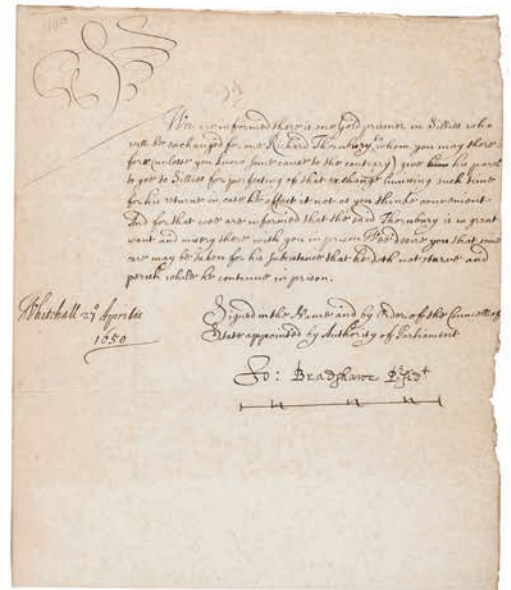 We are informed there is one Gold prisoner in Sillies who
will be exchanged for one Richard Thornbury, whom you may there
fore (unless you know some cause to the contrary) give him his parol
to goe to Sillies for perfecting of that exchange limiting such time
for his returne in case he effect it not as you thinke convenient
And for that wee are informed that the said Thornbury is in great
want and misery there with you in prison Wee desire you that some
care may be taken for his subsistance that he doth not starve and
perish while he continue in prison.
Whitehall 27 Aprilis
1650
Signed in the Name and by Order of the Councell of
State appointed by Authority of Parliament
Jo: Bradshawe Psidt